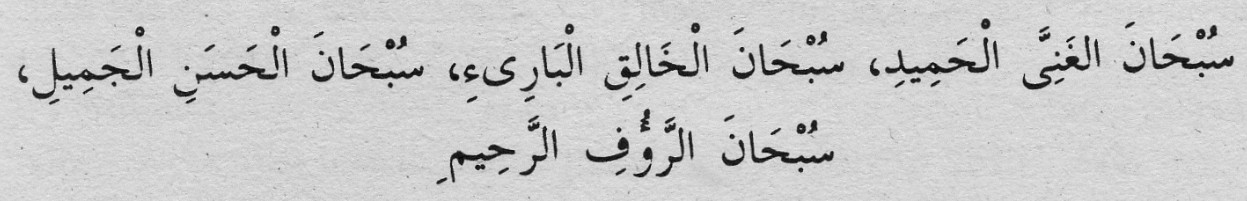 سُبْحَانَ الغَنِىَّ الْحَمِيدِ، سُبْحَانَ الْخَالِقِ الْبَارِىءِ، سُبْحَانَ الْحَسَنِ الْجَمِيلِ،
سُبْحَانَ الرَّؤُفِ الرَّحِيمِ